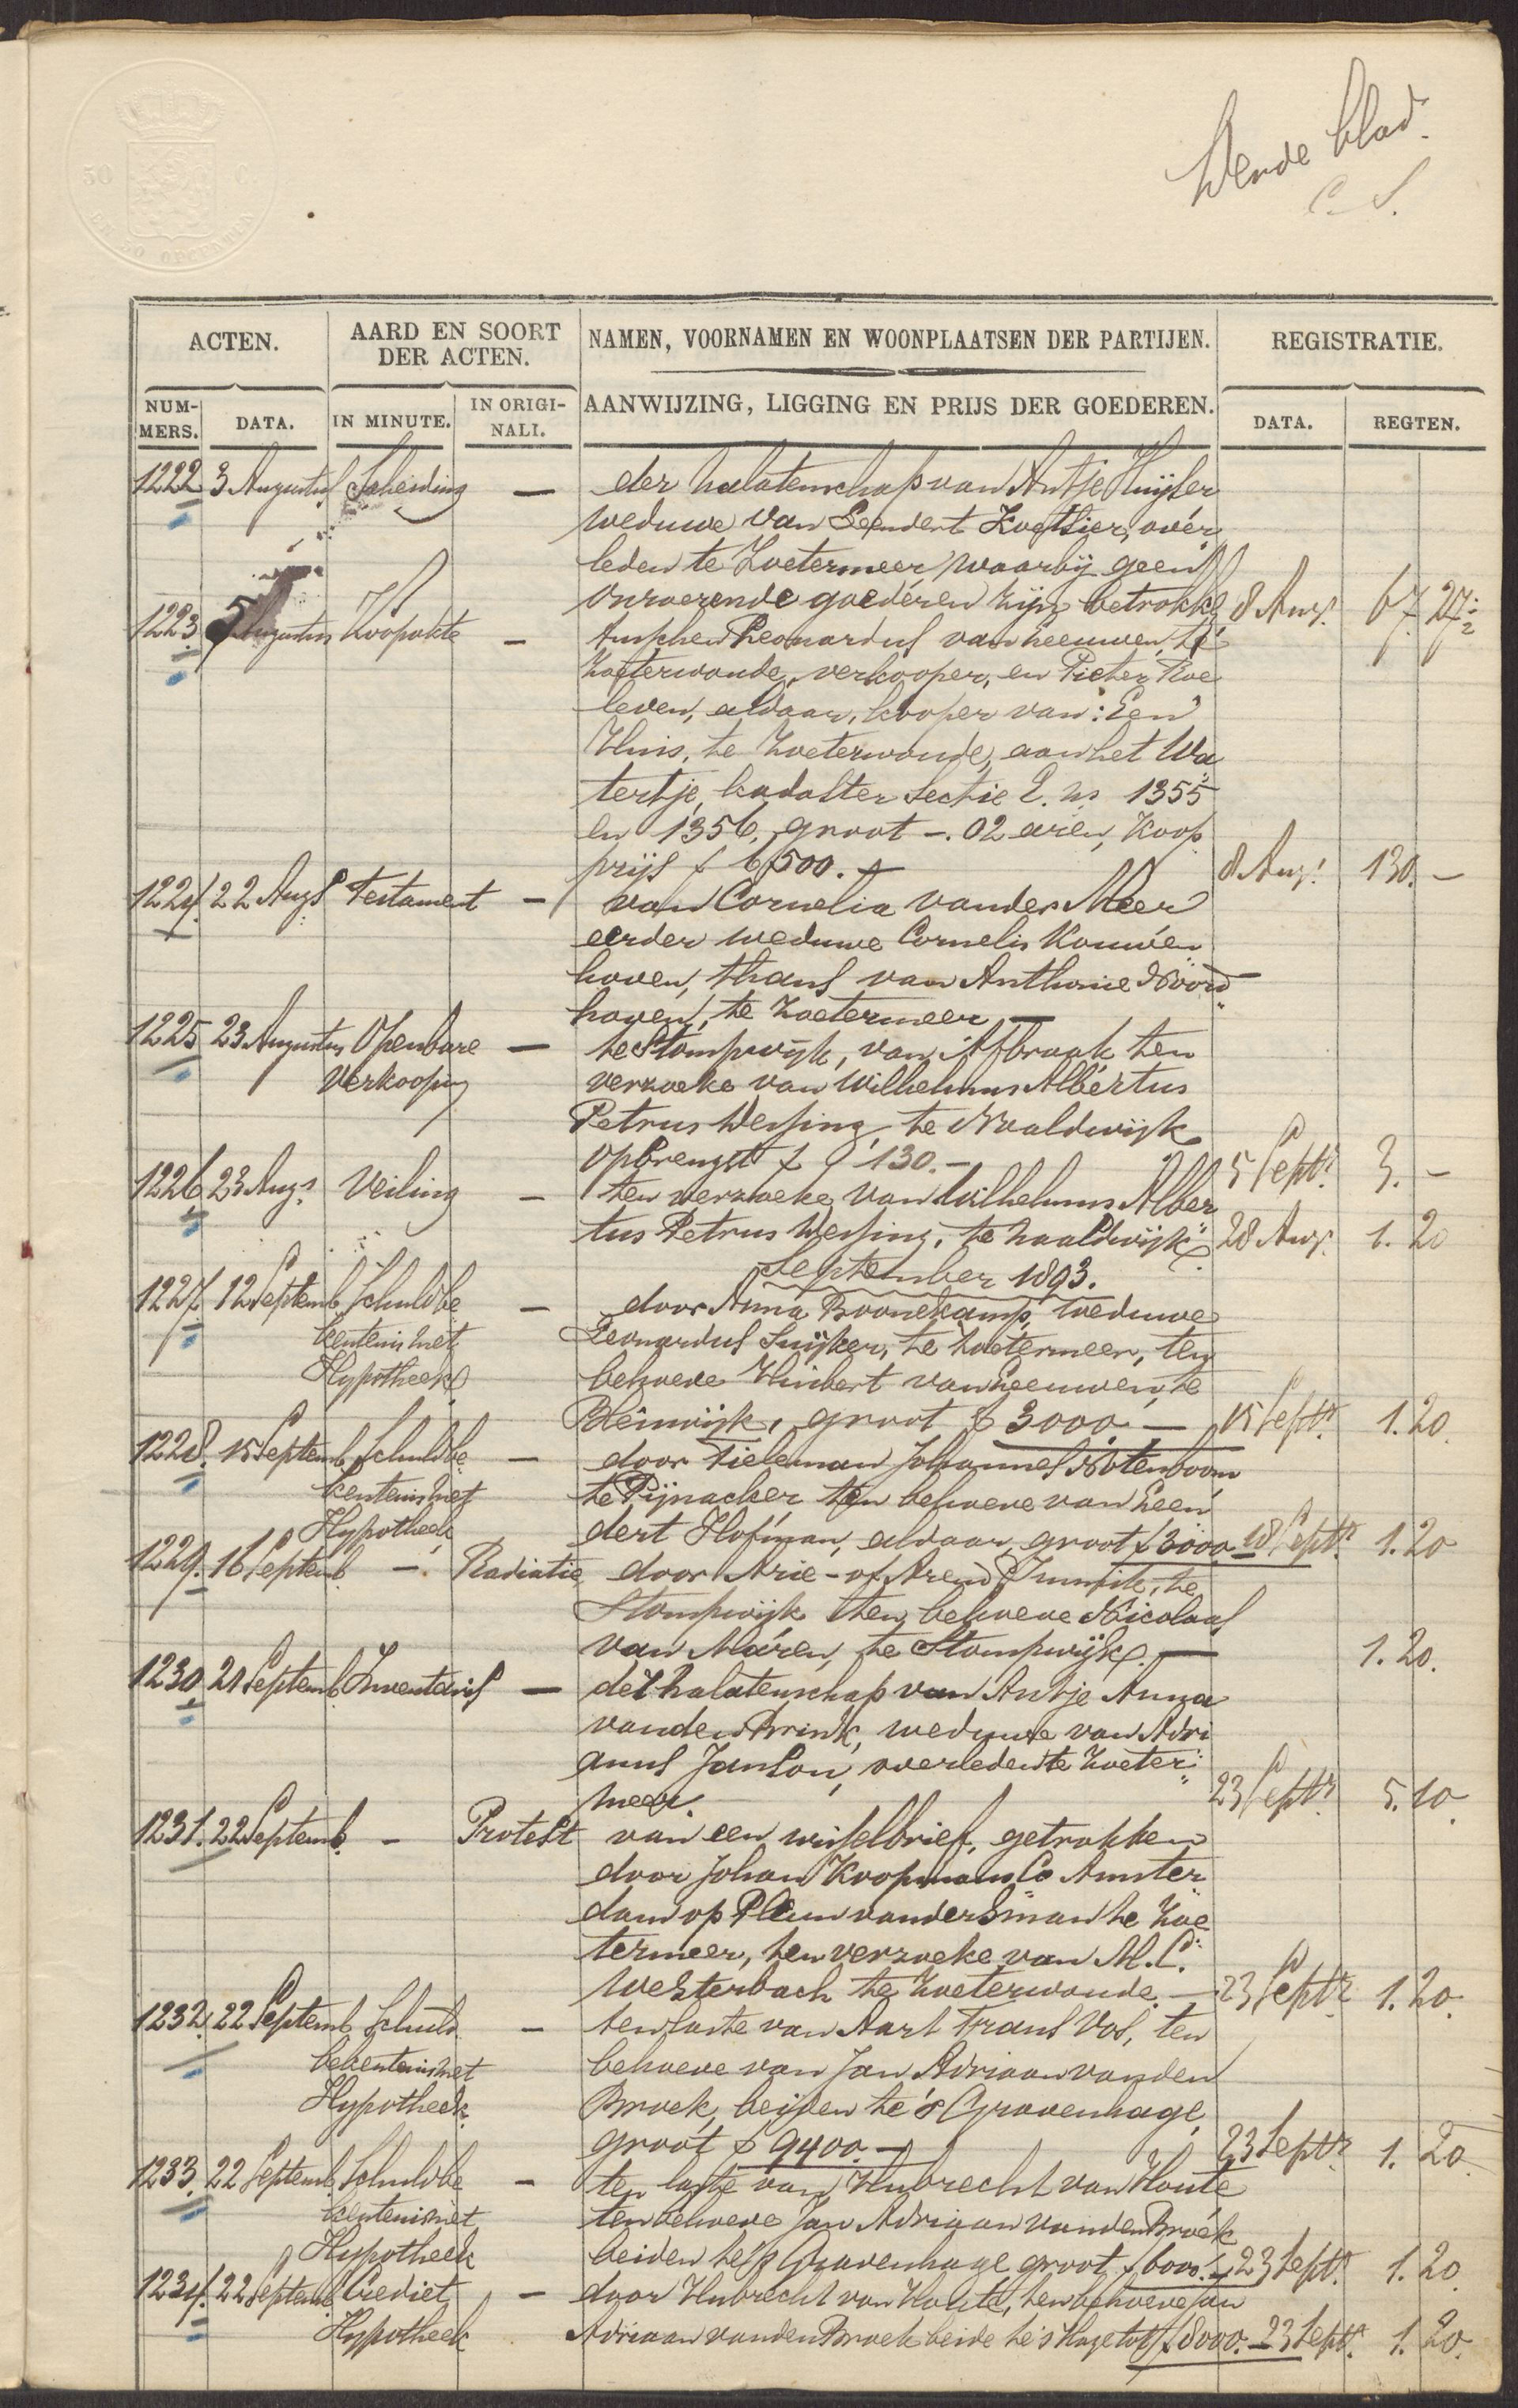 30 C.
blad.
C. S.
ACTEN.
AARD EN SOORT
DER ACTEN.
NAMEN, VOORNAMEN EN WOONPLAATSEN DER PARTIJEN.
REGISTRATIE.
NUM-
MERS.
DATA.
IN MINUTE.
IN ORIGI-
NALI.
AANWIJZING, LIGGING EN PRIJS DER GOEDEREN.
DATA.
REGTEN.
1222 3 Augustus Scheiding — der nalatenschap van Antje Huijser
weduwe van Leendert Koetsier, over
leden te Zoetermeer, waarbij geen
onroerende goederen zijn betrokk. 8 Aug. 67. 27 ½
1223. 5 Augustus Koopakte — Leonardus van Leeuwen, te
Zoeterwoude, verkooper, en Pieter Roe
leven, aldaar, kooper van: Een
Huis, te Zoeterwoude, aan het Wa
tertje, kadaster Sectie E. no 1355
en 1356, groot —. 02 aren, Koop
prijs f 6500. — 8 Aug. 130. —
1224. 22 Augs Testament — van Cornelia van der Meer
eerder weduwe Cornelis Kouwen
hoven, thans van Anthonie Noord
hoven, te Zoetermeer —
1225 23 Augustus Openbare — te Stompwijk, van Afbraak ten
Verkooping verzoeke van Wilhelmus Albertus
Petrus Wessing, te Naaldwijk
Opbrengst f 130. — 5 Septr. 3. —
1226 23 Augs. Veiling — ten verzoeke van Wilhelmus Alber
tus Petrus Wessing, te Naaldwijk 28 Aug. 1. 20
September 1893.
1227. 12 Septemb. Schuldbe — door Anna Boonekamp, weduwe
kentenis met Leonardus Suijker, te Zoetermeer, ten
Hypotheek behoeve Huibert van Leeuwen, te
Bleiswijk, groot f 3000. — 15 Septr. 1. 20.
1228. 15 Septemb. Schuldbe — door Tieleman Johannes Notenboom
kentenis met te Pijnacker, ten behoeve van Leen
Hypotheek dert Hofman, aldaar, groot f 3000 18 Septr. 1. 20
1229. 16 Septemb. — Radiatie door Arie - of Arend te
Stompwijk ten behoeve Nicolaas
van Maren, te Stompwijk. — 1. 20.
1230 21 Septemb. Inventaris — der nalatenschap van Antje Anna
van den Brink, weduwe van Adri
anus Janson, overleden te Zoeter
meer. 23 Septr. 5. 10
1231. 22 Septemb. — Protest van een wisselbrief, getrokken
door Johan Koopmans Co Amster
dam op Pleun van der Sman te Zoe
termeer, ten verzoeke van M. C.
Westerbach te Zoeterwoude. — 23 Septr. 1. 20.
1232. 22 Septemb. Schuld — ten laste van Aart Frans Vos, ten
bekentenis met behoeve van Jan Adriaan van den
Hypotheek. Broek, beiden te 's Gravenhage,
groot f 9400. — 23 Septr. 1. 20.
1233. 22 Septemb. Schuldbe — ten laste van Hubrecht van Houte
kentenis met ten behoeve Jan Adriaan van den Broek
Hypotheek beiden te 's Gravenhage groot f 6000. — 23 Septr. 1. 20.
1234. 22 Septemb. Crediet — door Hubrecht van Houte, ten behoeve Jan
Hypotheek Adriaan van den Broek beide te 's Hage tot f 8000. — 23 Septr. 1. 20.